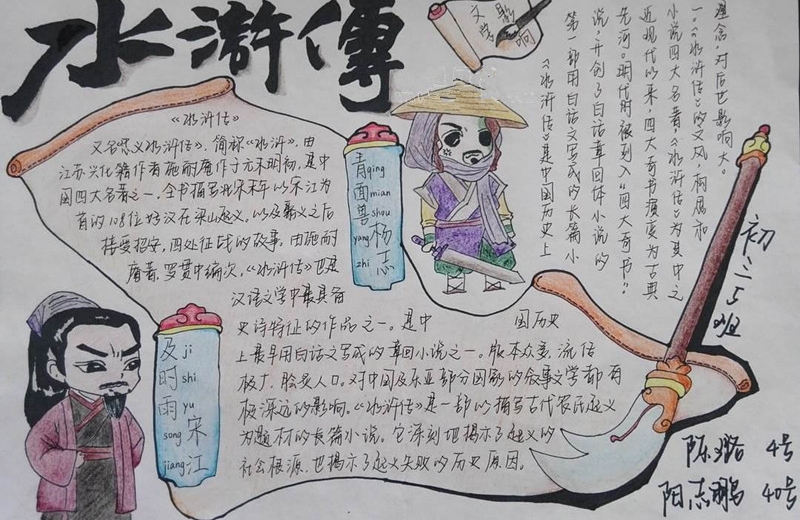 水浒傳
《水浒传》
又名忠义水浒传》，简称《水浒》，由
江苏兴化籍作者施耐庵作于元末明初，是中
国四大名著之一。全书描写北宋末年以宋江为
首的108位好汉在梁山起义，以及聚义之后
接受招安，四处征战的故事。由施耐
庵著，罗贯中编次，《水浒传》也是
汉语文学中最具备
史诗特征的作品之一。是中 国历史
上最早用白话文写成的章回小说之一。版本众多，流传
极广，脍炙人口。对中国及东亚部分国家的叙事文学都有
极深远的影响。《水浒传》是一部以描写古代农民起义
为题材的长篇小说。它深刻地揭示了起义的
社会根源，也揭示了起义失败的历史原因。
青qing
面mian
兽shou
yang杨
zhi志
及ji
时shi
雨yu
song宋
jiang江
影响
文学
《水浒传》是中国历史上
第一部用白话文写成的长篇小
说，开创了白话章回体小说的
先河。明代时被列入“四大奇书”。
近现代以来，四大奇书演变为古典
小说四大名著《水浒传》为其中之
一。《水浒传》的文风、构局和
理念，对后世影响大。
初二5班
陈 路 4号
阳志鹏 40号